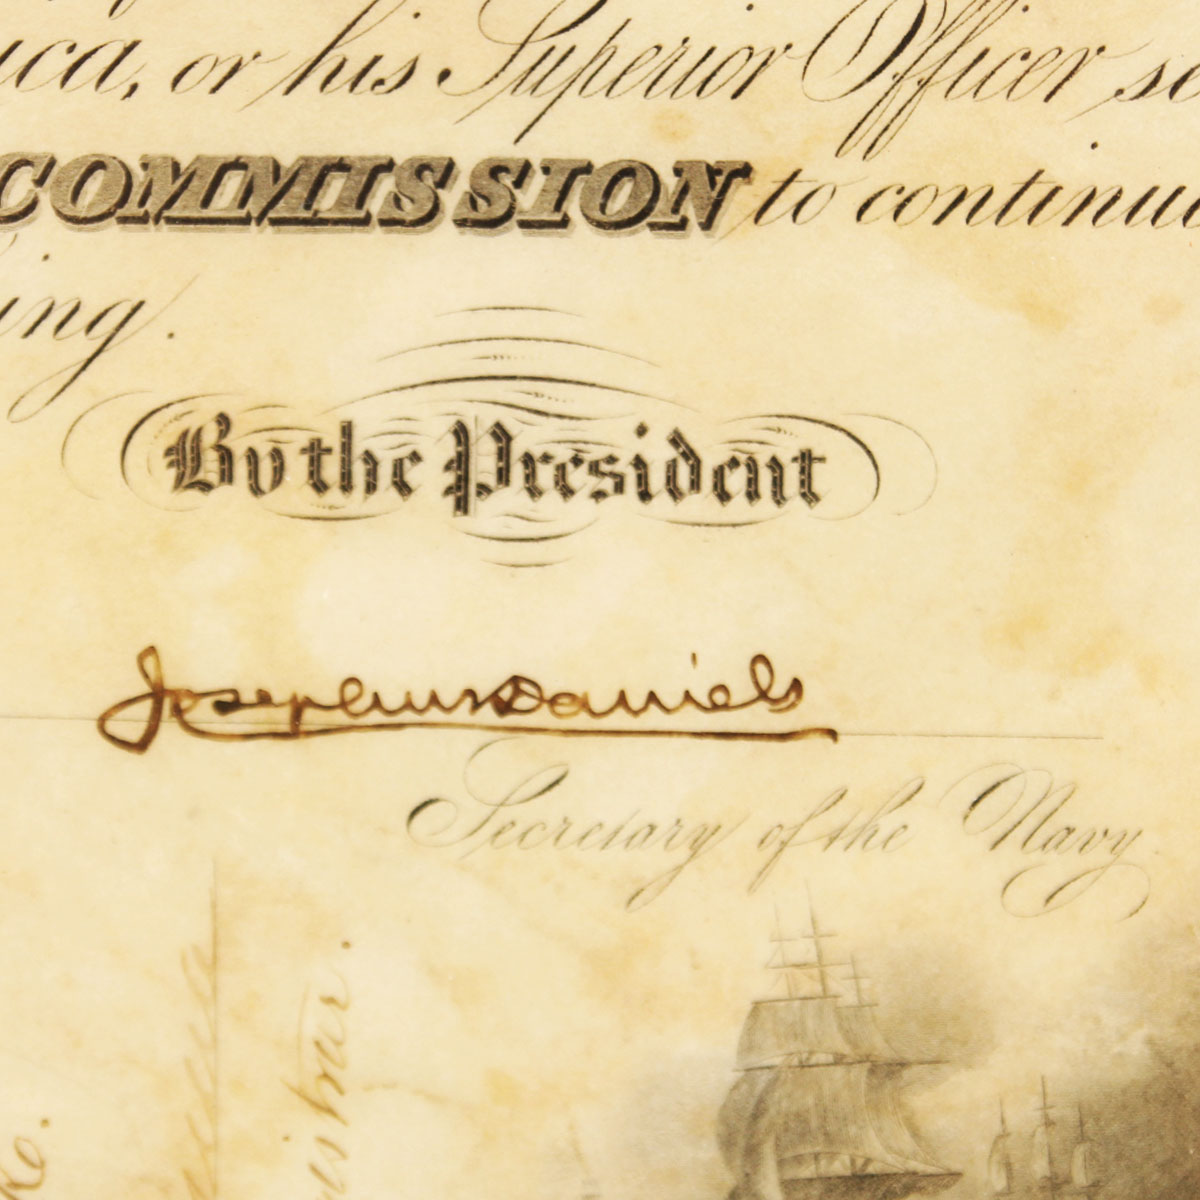 or his Superior Officer
COMMISSION to
By the President
Josephus Daniels
Secretary of the Navy